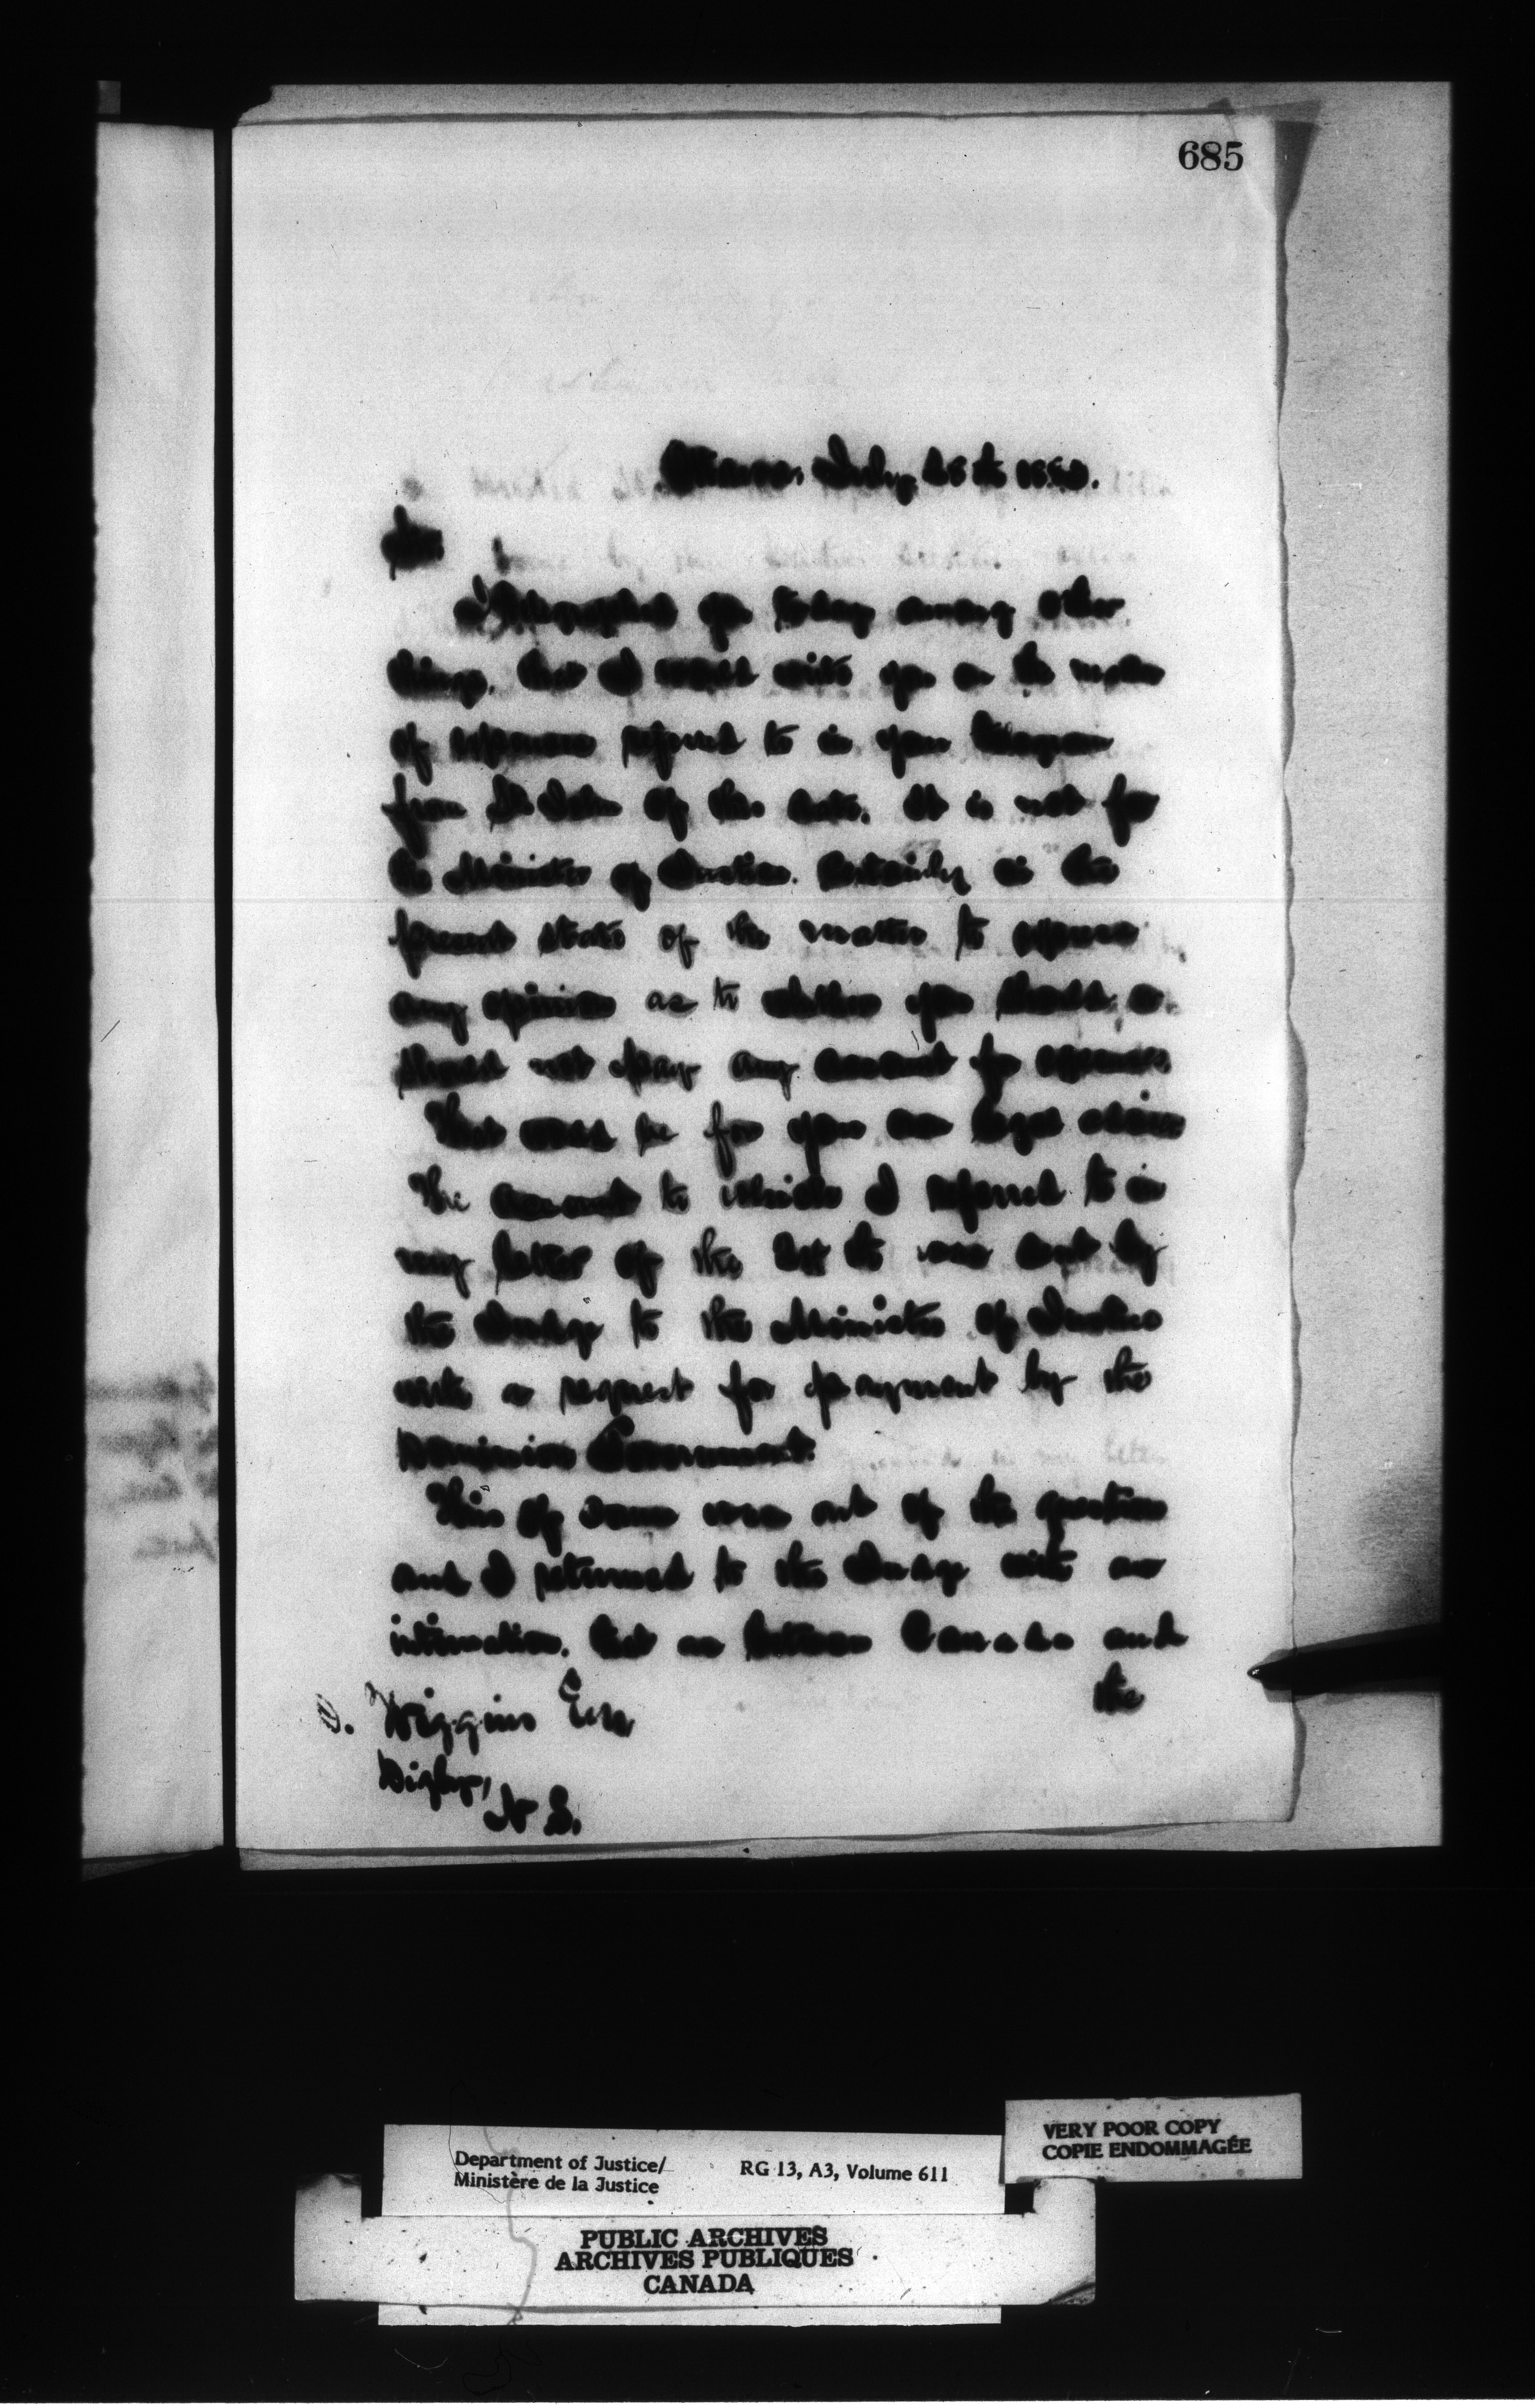 685
Ottawa, July
Sir
I Telegraphed you today among other
things, that I would write you on the matter
of expenses referred to in your telegram
from of the It is not for
the Minister of Justice, certainly in the
present state of the matter to express
any opinion as to whether you should or
should not pay any amount for expenses
That would be for your own legal adviser
The account to which I referred to in
my letter of the was sent by
the Judge to the Minister of Justice
with a request for payment by the
Dominion Government.
This of course was out of the question
and I returned to the Judge with an
intimation, that as between Canada and
the
Wiggins Esq
Digby,
N S.
Department of Justice/
Ministère de la Justice
RG 13, A3, Volume 611
VERY POOR COPY
COPIE ENDOMMAGÉE
PUBLIC ARCHIVES
ARCHIVES PUBLIQUES
CANADA